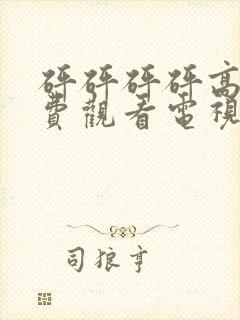 砰砰砰砰高
費觀看電視
司狼亨